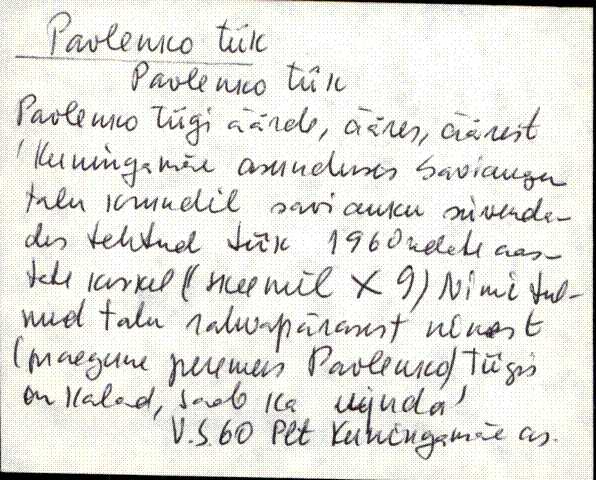 Pavlenko tiik
Pavlenko tiik
Pavlenko tiigi äärde, ääres, äärest
'Kuningamäe asunduses Saviaugu
talu krundil saviauku süvenda-
des tehtud tiik 1960ndate aas-
tate keskel (skeemil X 9) Nimi tul-
nud talu rahvapärasest nimest
(praegune peremees Pavlenko) Tiigis
on kalad, saab ka ujuda'
V.S. 60 Plt Kuningamäe as.